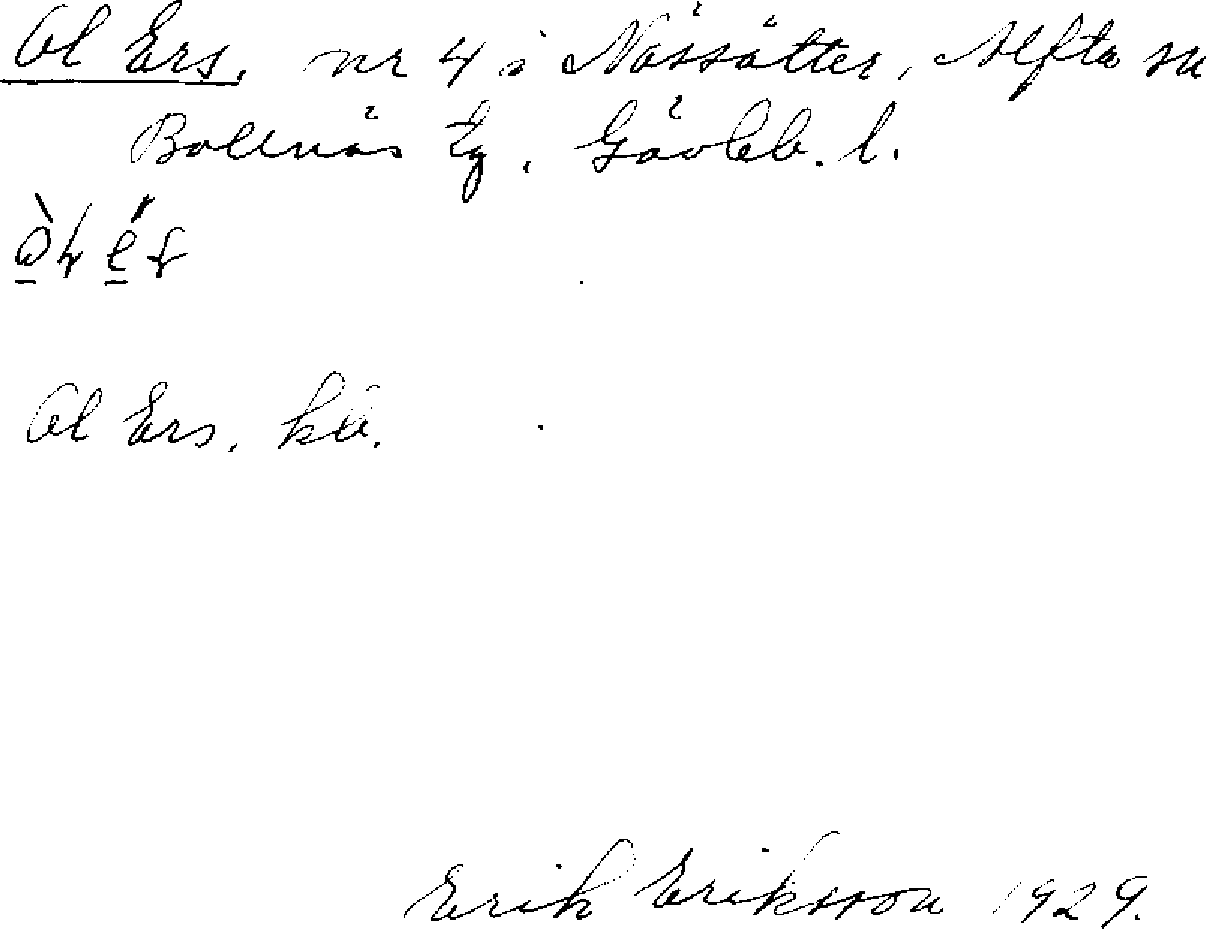 Ol Ers, nr 4 i Nässätter, Alfta sn
Bollnäs tg, Gävleb. l.
Ol Ers, kb.
Erik Eriksson 1929.